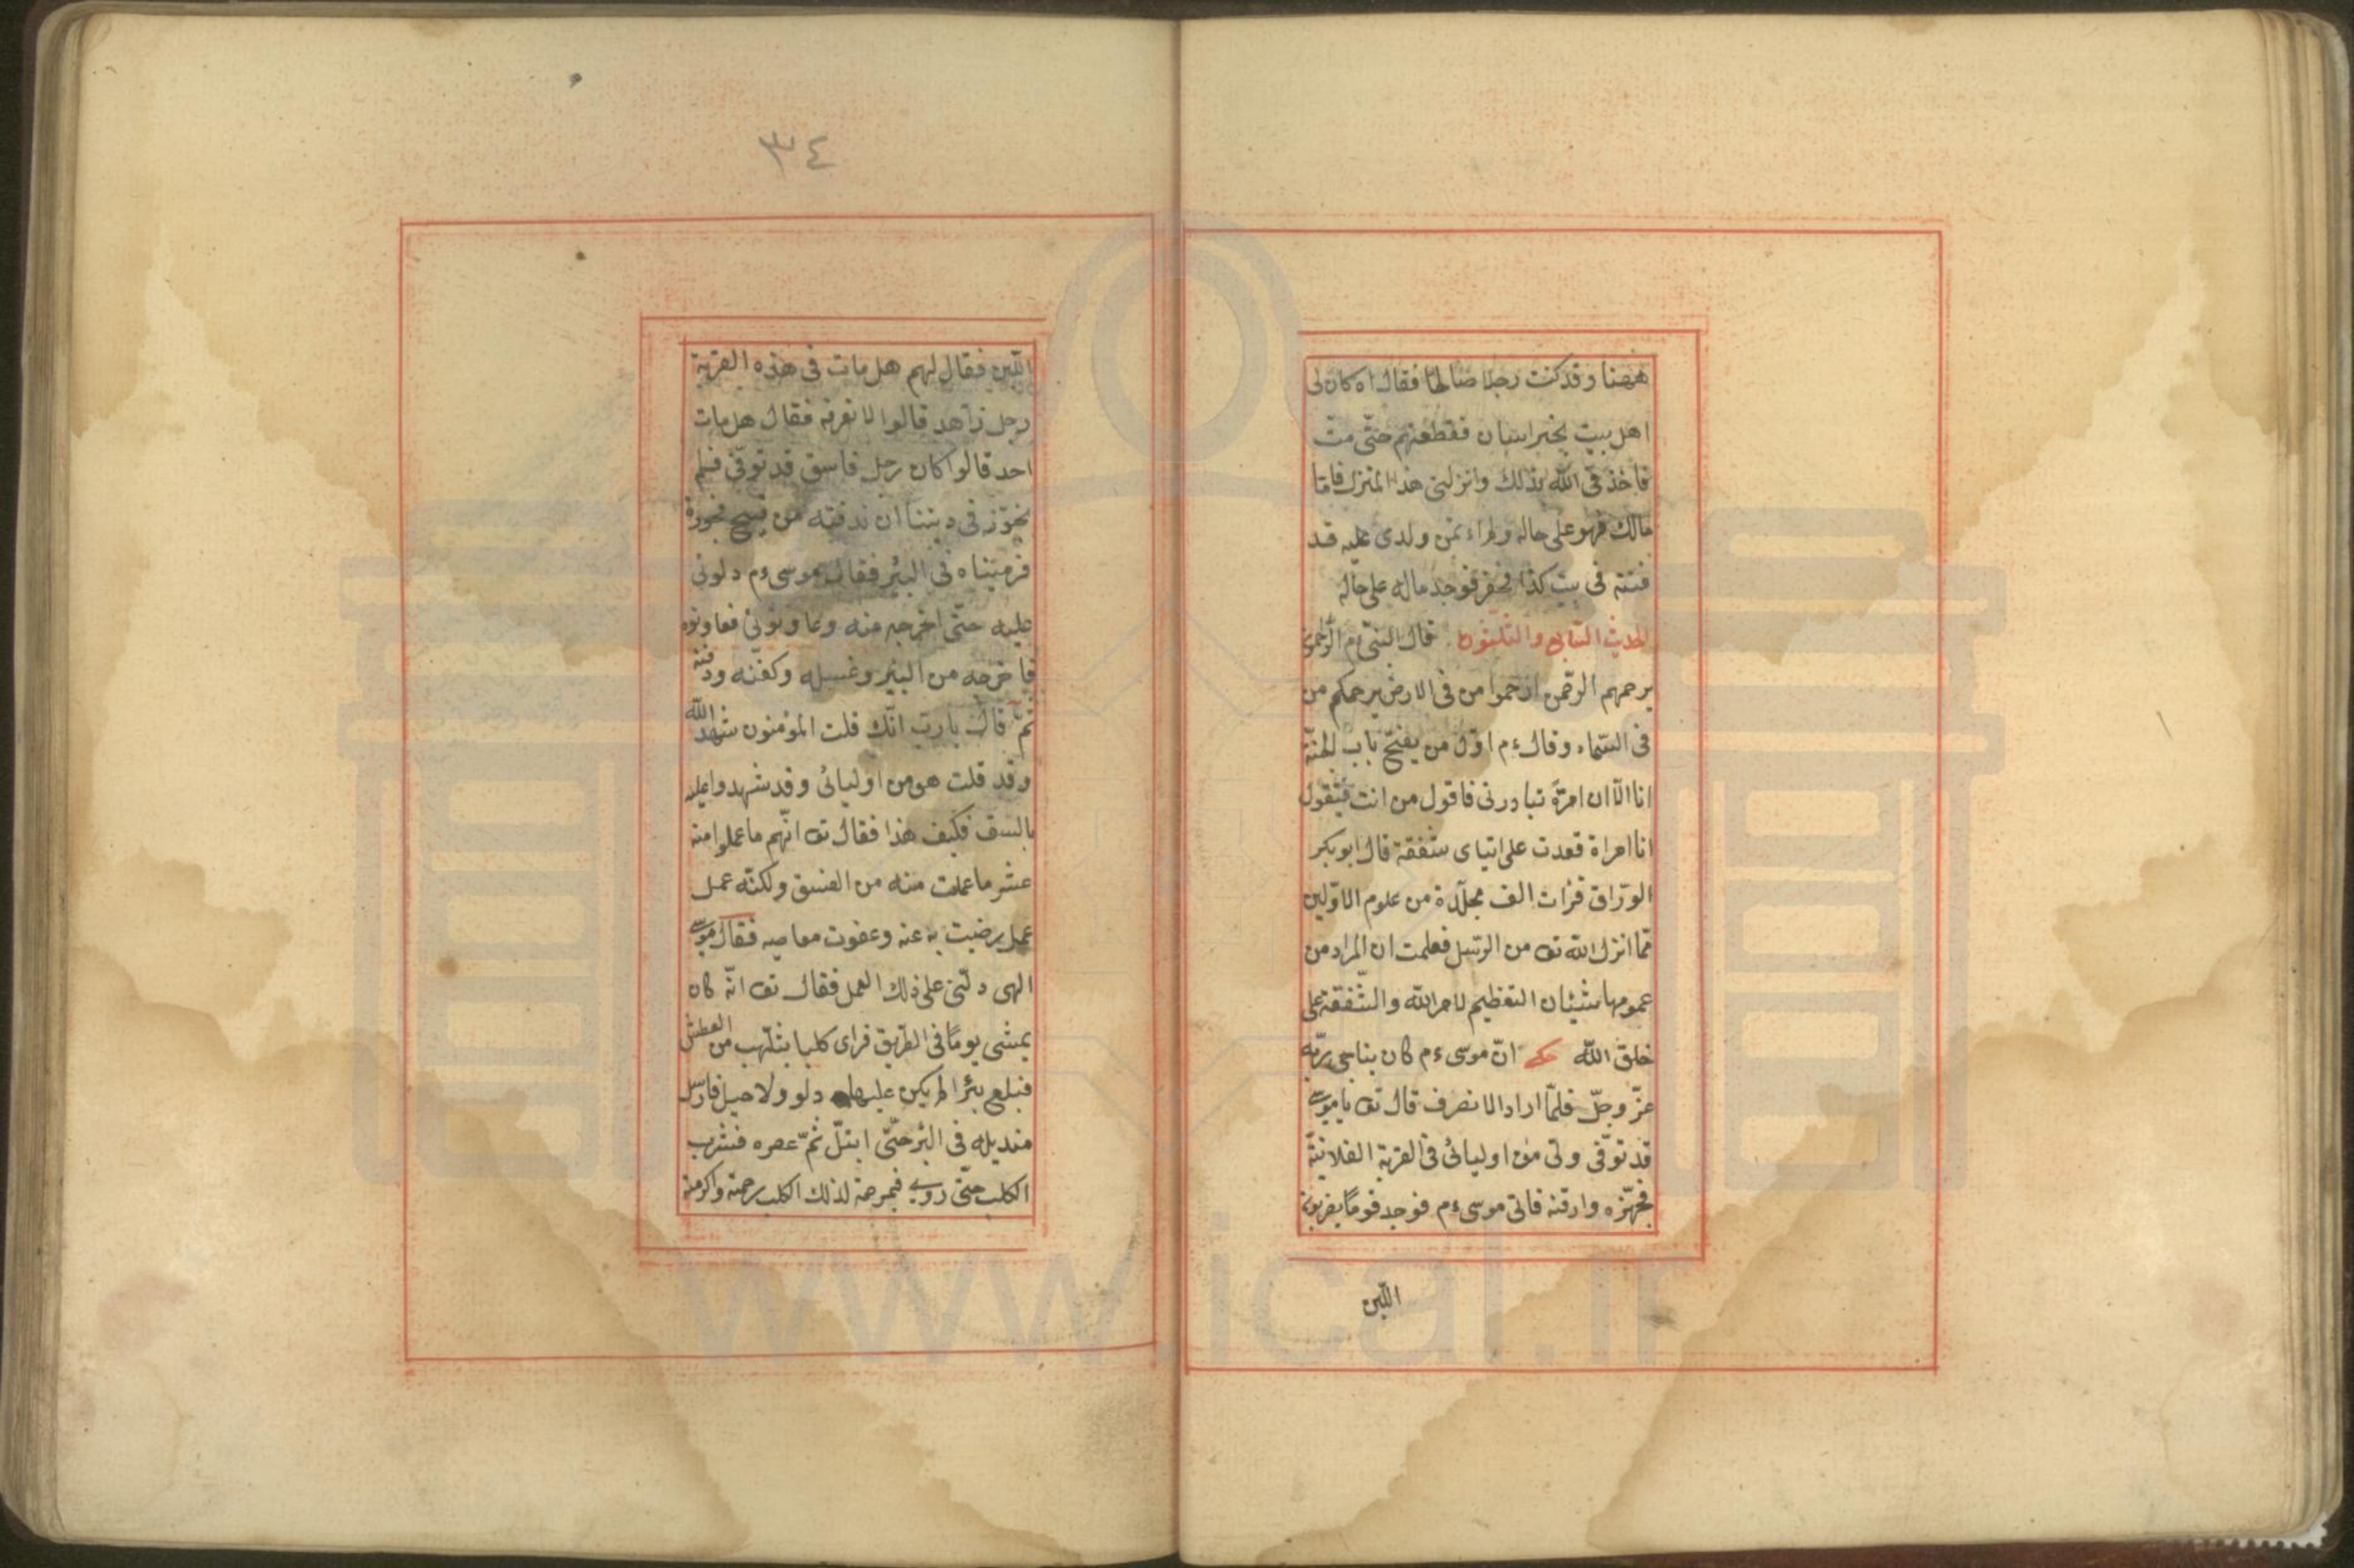 ههنا وقد كنت رجلا صالحا فقال اه كان لى
اهل بيت بخراسان فقطعتهم حتّى متّ
فاخذ فى الله بذلك وانزلنى هذا المنزل فامّا
مالك فهو على حاله ولم اءتمن ولدى عليه قد
فنته فى بيت كذا فحفر فوجد ماله على حاله
الحديث السّابع والثلثون قال النبىّ ءم الرّاحمون
يرحمهم الرّحمن ارحموا من فى الارض يرحمكم من
فى السّماء وقال ءم اوّل من يفتح باب الجنّة
انا الّا ان امرّة تبادرنى فاقول من انت فتقول
انا امراة قعدت على ايتاى شفقة قال ابو بكر
الورّاق قرات الف مجلّدة من علوم الاوّلين
ممّا انزل الله تعـ من الرّسل فعلمت ان المراد من
عمومها شيئان التعظيم لامر الله والشّفقة على
خلق الله حكـ انّ موسى ءم كان يناجى ربّه
عزّ وجلّ فلمّا اراد الانصرف قال تعـ يا موسى
قد توّفى ولى من اوليائى فى القرية الفلانيّة
فجهّزه وادفنه فاتى موسى ءم فوجد قومًا يضربون
اللّبن
٣٤
اللّبن فقال لهم هل مات فى هذه القرية
رجل زاهد قالوا لا نعرفه فقال هل مات
احد قالوا كان رجل فاسق قد توفّى فلم
نجوّز فى ديننا ان ندفنه من قبيح فجوره
فرميناه فى البئر فقال موسى ءم دلونى
عليه حتّى اخرجه منه وعاونونى فعاونوه
فاخرجه من البئر وغسله وكفّنه ودفنه
ثمّ قال يا ربّ انّك قلت المؤمنون شهد الله
وقد قلت هو من اوليائى وقد شهدوا عليه
بالسق فكيف هذا فقال تعـ انّهم ما عملوا منه
عشر ما عملت منه من الفسق ولكنّه عمل
عمل رضيت به عنه وعفوت معاصيه فقال موسى
الهى دلّنى على ذلك العمل فقال تعـ انّه كان
يمشى يومًا فى الطّريق فراى كلبا يتلهب من العطش
فبلغ بئرا لم يكن عليها دلو ولا حبل فارسل
منديله فى البئر حتّى ابتلّ ثمّ عصره فشرب
الكلب حتّى روى فبمرحمة لذلك الكلب رحمته واكرمته